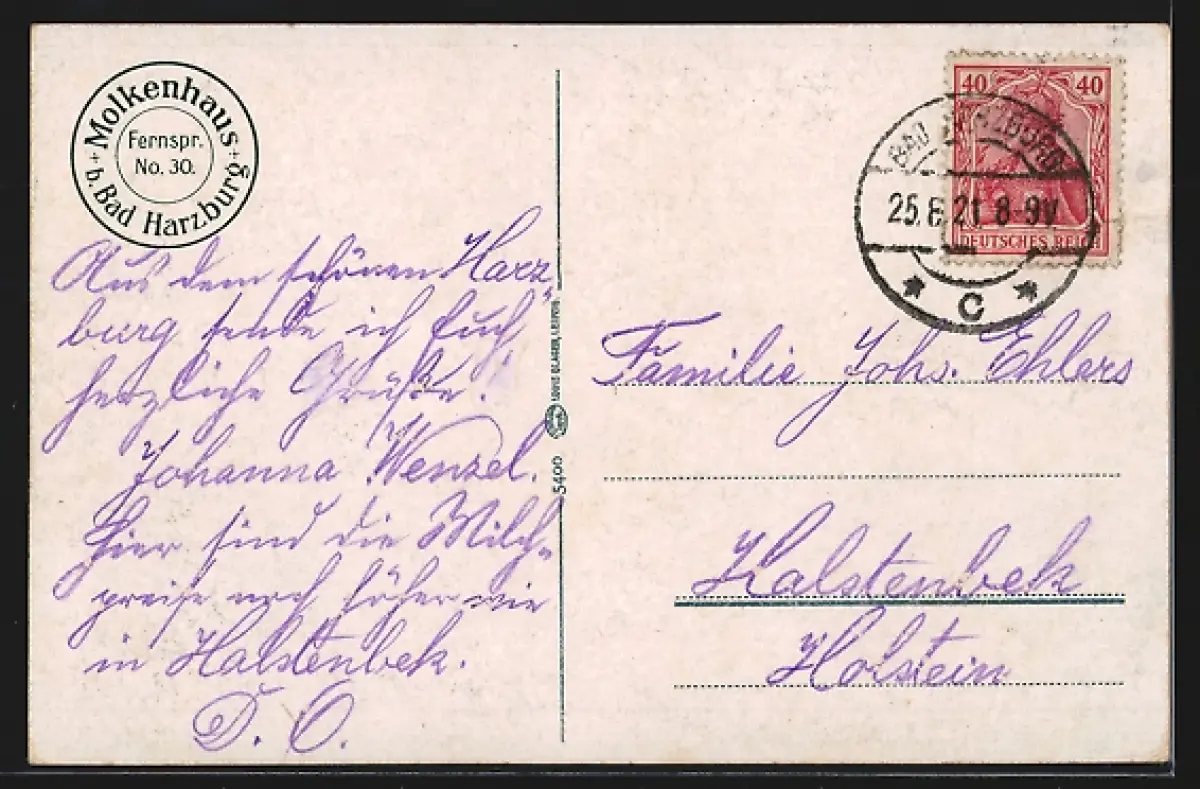 Molkenhaus
b. Bad Harzburg
Fernspr.
No. 30.
Aus dem schönen Harz
burg sende ich Euch
herzliche Grüße!
Johanna Wenzel.
Hier sind die Milch-
preise noch höher wie
in Halstenbek.
D. O.
LOUIS GLASER, LEIPZIG
5400
40 40
DEUTSCHES REICH
BAD HARZBURG
25.6.21 8-9V
* C *
Familie Johs. Ehlers
Halstenbek
Holstein